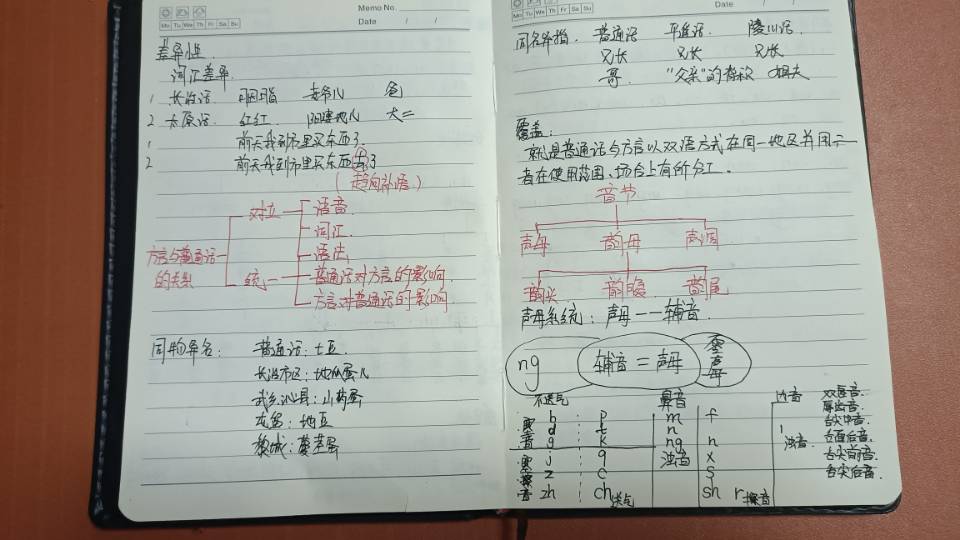 Memo No.
Mo Tu We Th Fr Sa Su
Date / /
差异性
词汇差异
1 长治话 胭脂 老爷儿 爸
2 太原话 红红 阳婆地儿 大二
1 前天我到市里买东西了
2 前天我到市里买东西去了
(趋向补语)
方言与普通话的关系
对立
语音
词汇
语法
统一
普通话对方言的影响
方言对普通话的影响
同物异名: 普通话:土豆
长治市区:地瓜蛋儿
武乡沁县:山药蛋
左乡:地豆
黎城:蔓菁蛋
Mo Tu We Th Fr Sa Su
Date / /
同名异指 普通话 平遥话 陵川话
兄长 兄长 兄长
哥 "父亲"的称呼 姐夫
覆盖:
就是普通话与方言以双语方式在同一地区并用,二
者在使用范围、场合上有所分工。
音节
声母 韵母 声调
韵头 韵腹 韵尾
声母系统:声母——辅音
ng 辅音=声母 零声母
不送气 鼻音 边音 双唇音
塞音 b p m f 唇齿音
d t n l 舌尖中音
g k ng h 浊音 舌面后音
塞擦音 j q 浊音 x 舌尖前音
z c s 舌尖后音
zh ch 送气 sh r 擦音